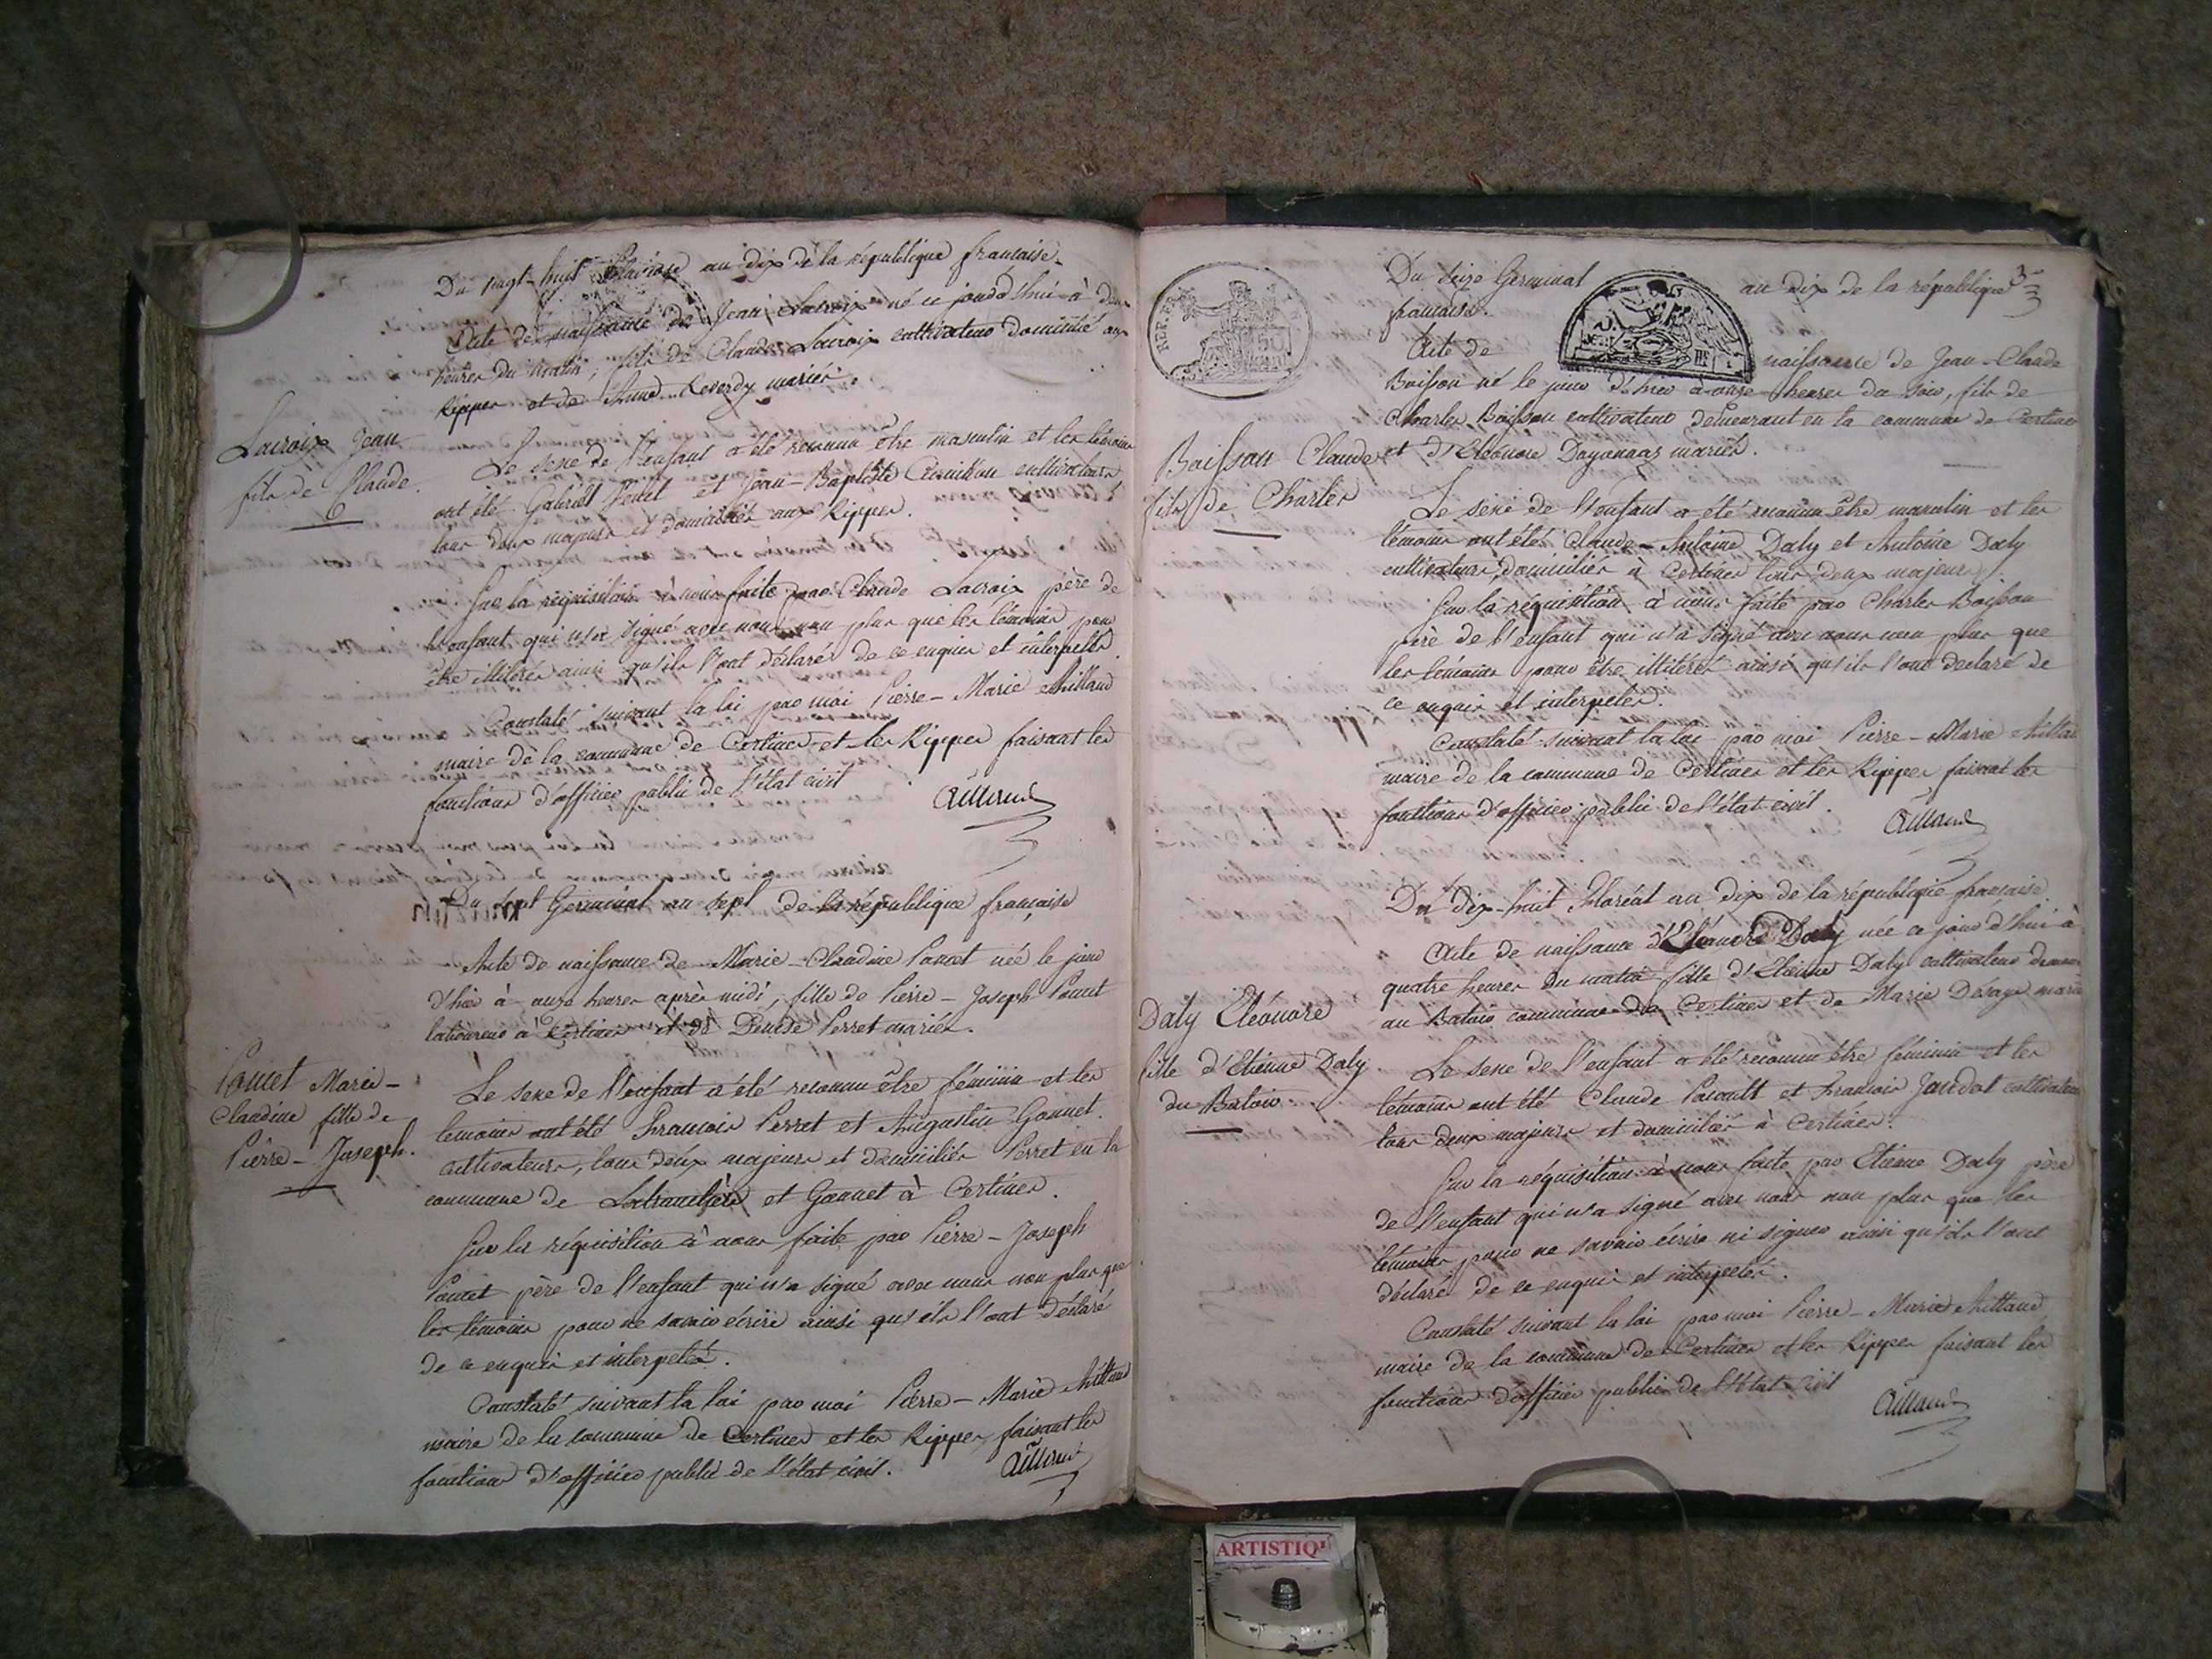 Du vingt-huit Pluviose an dix de la république française.
Acte de naissance de Jean Lacroix né ce jourd'hui à deux
heures du matin, fils de Claude Lacroix cultivateur domicilié aux
Rippes et de Reverdy mariés.
Lacroix Jean
fils de Claude.
Le sexe de l'enfant a été reconnu être masculin et les témoins
ont été Gabriel et Jean-Baptiste cultivateurs
tous deux majeurs et domiciliés aux Rippes.
Sur la réquisition à nous faite par Claude Lacroix père de
l'enfant qui n'a signé avec nous non plus que les témoins pour
être illitérés ainsi qu'ils l'ont déclaré de ce enquis et interpellés.
Constaté suivant la loi par moi Pierre-Marie Aillaud
maire de la commune de Certines et les Rippes faisant les
fonctions d'officier public de l'état civil
Aillaud
Du sept Germinal an sept de la république française
Acte de naissance de Marie-Claudine Poncet née le jour
d'hier à onze heures après midi, fille de Pierre-Joseph Poncet
laboureur à Certines et de Denise Perret mariés.
Poncet Marie-
Claudine fille de
Pierre-Joseph.
Le sexe de l'enfant a été reconnu être féminin et les
temoins ont été François Perret et Augustin Gonnet.
cultivateurs, tous deux majeurs et domiciliés Perret en la
commune de Latranclière et Gonnet à Certines.
Sur la réquisition à nous faite par Pierre-Joseph
Poncet père de l'enfant qui n'a signé avec nous non plus que
les témoins pour ne savoir écrire ainsi qu'ils l'ont déclaré
de ce enquis et interpelé.
Constaté suivant la loi par moi Pierre-Marie Aillaud
maire de la commune de Certines et les Rippes faisant les
fonctions d'officier public de l'état civil.
Aillaud
3
REP. FRA.
50
Du seize Germinal an dix de la république
française.
Acte de naissance de Jean-Claude
Boisson né le jour d'hier à onze heures du soir, fils de
Charles Boisson cultivateur demeurant en la commune de Certines
et d'Eléonore mariés.
Boisson Claude
fils de Charles
Le sexe de l'enfant a été reconnu être masculin et les
témoins ont étés Claude-Antoine Daly et Antoine Daly
cultivateurs, domiciliés à Certines tous deux majeurs.
Sur la réquisition à nous faite par Charles Boisson
père de l'enfant qui n'a signé avec nous non plus que
les témoins pour être illitérés ainsi qu'ils l'ont declaré de
ce enquis et interpelés.
Constaté suivant la loi par moi Pierre-Marie Aillau
maire de la commune de Certines et les Rippes faisant les
fonctions d'officier public de l'état civil.
Aillaud
Du dix-huit Floréal an dix de la république française.
Acte de naissance d'Eléonore Daly née ce jour d'hui à
quatre heures du matin fille d'Etienne Daly cultivateur
au Batoir commune de Certines et de Marie
Daly Eléonore
fille d'Etienne Daly
du Batoir.
Le sexe de l'enfant a été reconnu être féminin et les
témoins ont été Claude et François Jandot cultivateurs
tous deux majeurs et domiciliés à Certines.
Sur la réquisition à nous faite par Etienne Daly père
de l'enfant qui n'a signé avec nous non plus que les
témoins pour ne savoir écrire ni signer ainsi qu'ils l'ont
déclaré de ce enquis et interpelés.
Constaté suivant la loi par moi Pierre-Marie Aillaud
maire de la commune de Certines et les Rippes faisant les
fonctions d'officier public de l'état civil
Aillaud
ARTISTIQ